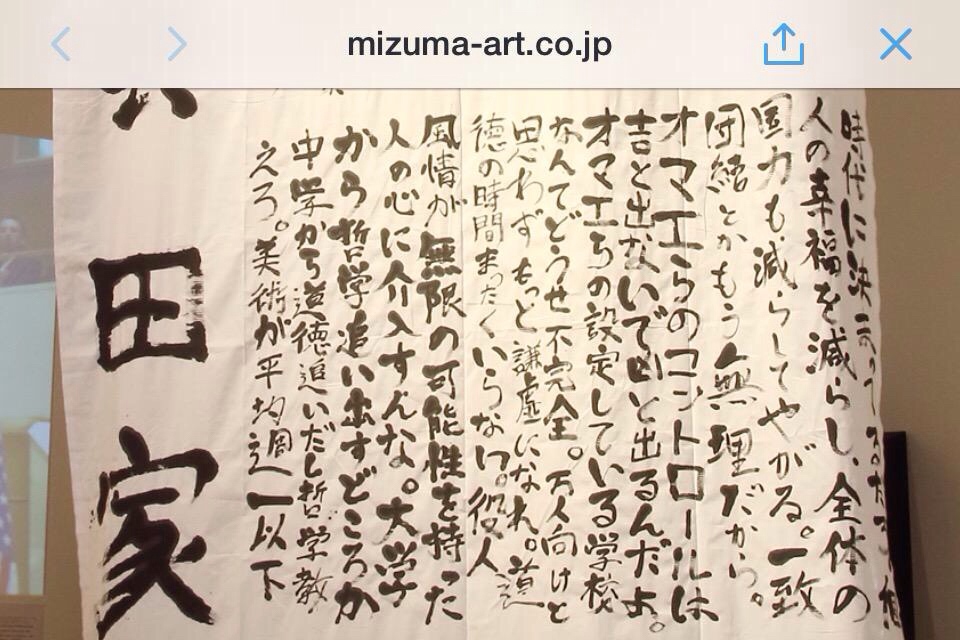 mizuma-art.co.jp
時代に決
人の幸福を減らし、全体の
国力も減らしてやがる。一致
団結とかもう無理だから。
オマエらのコントロールは
吉と出ないで凶と出るんだよ。
オマエらの設定している学校
なんてどうせ不完全。万人向けと
思わずもっと謙虚になれ。道
徳の時間まったくいらない。役人
風情が無限の可能性を持った
人の心に介入すんな。大学
から哲学追い出すどころか
中学から道徳追いだし哲学教
えろ。美術が平均週一以下
田家